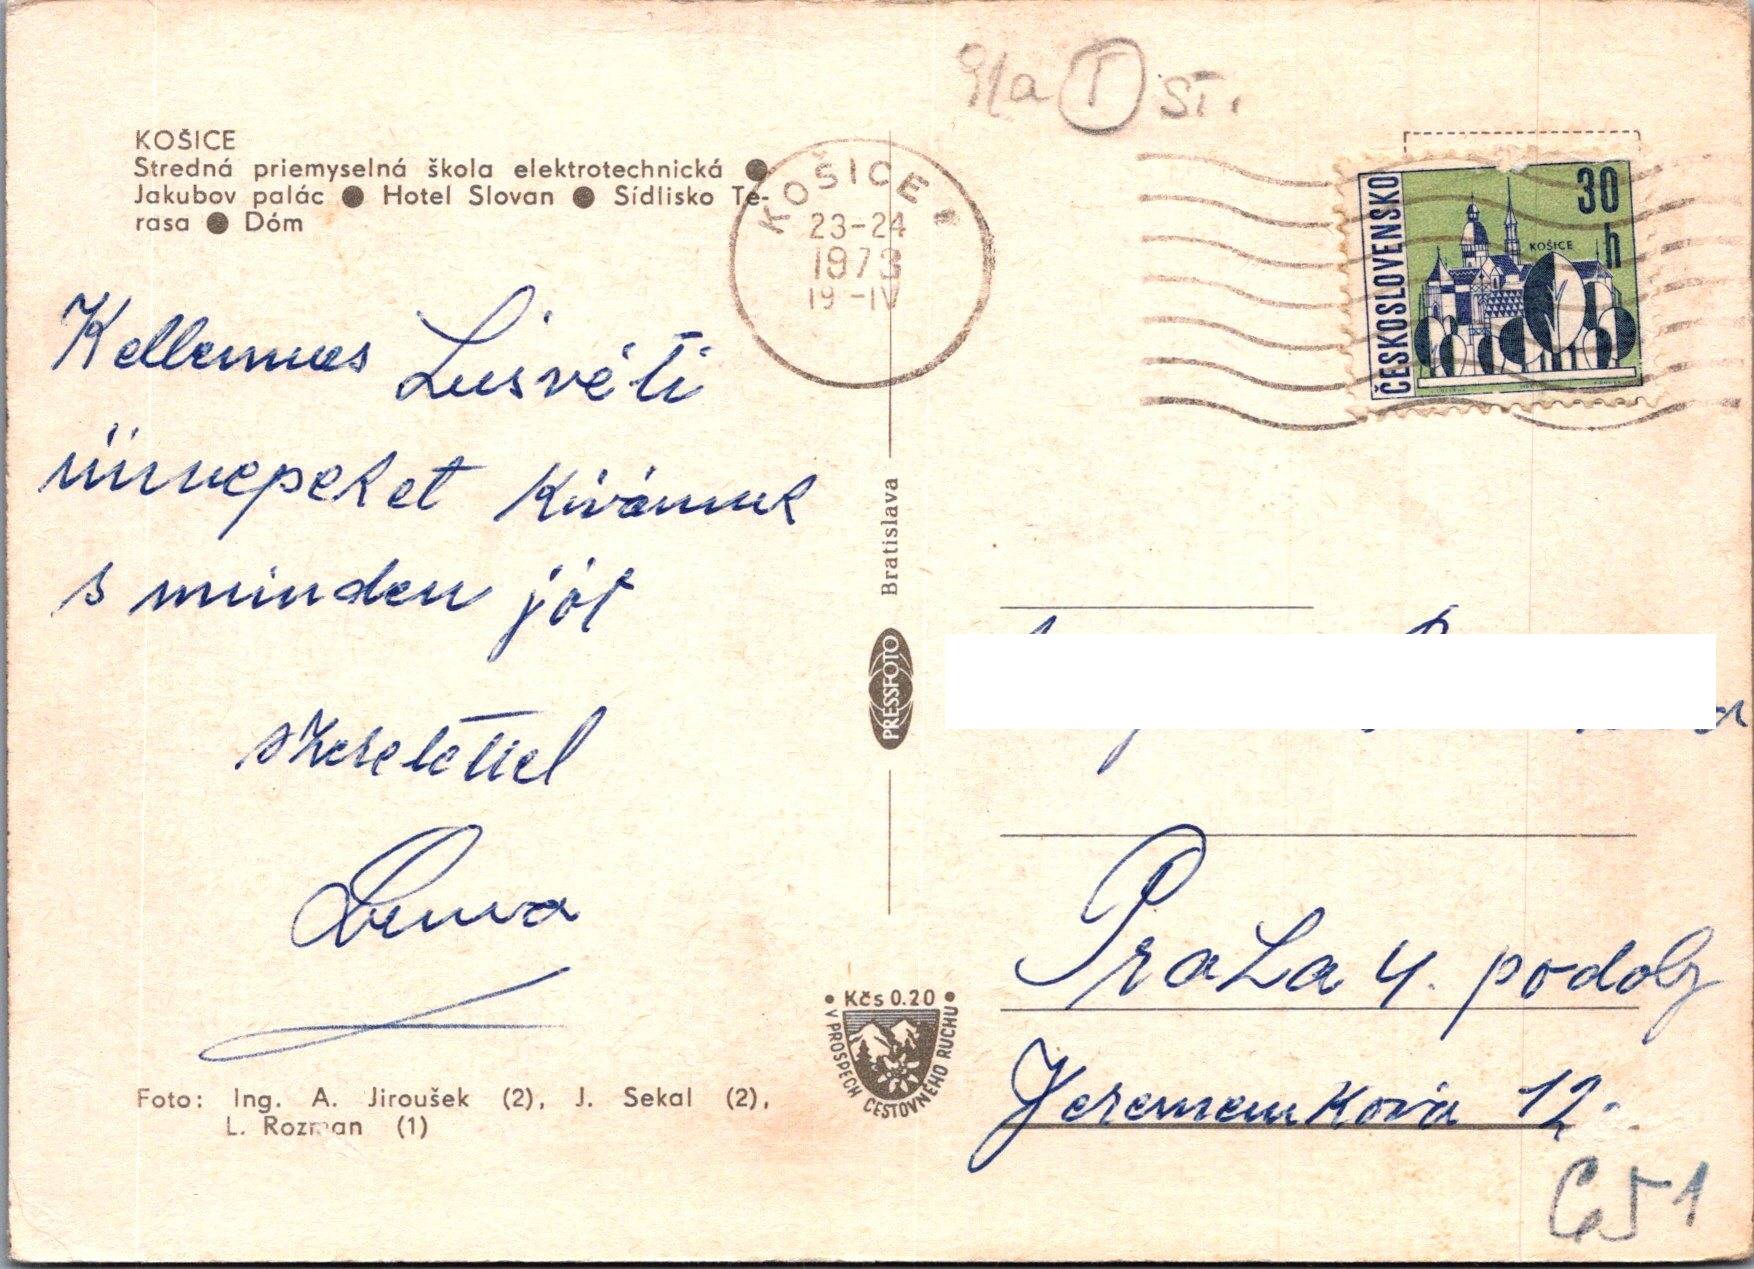 91a I ST.
KOŠICE
Stredná priemyselná škola elektrotechnická ●
Jakubov palác ● Hotel Slovan ● Sídlisko Te-
rasa ● Dóm
KOŠICE 1
23-24
1973
19 -IV
ČESKOSLOVENSKO
30
h
KOŠICE
Kellemes Husvéti
ünnepeket Kivánunk
s minden jót
szeretettel
Bratislava
PRESSFOTO
Praha 4. podoly
Jeremenková 12.
• Kčs 0.20 •
V PROSPECH CESTOVNÉHO RUCHU
Foto: Ing. A. Jiroušek (2), J. Sekal (2),
L. Rozman (1)